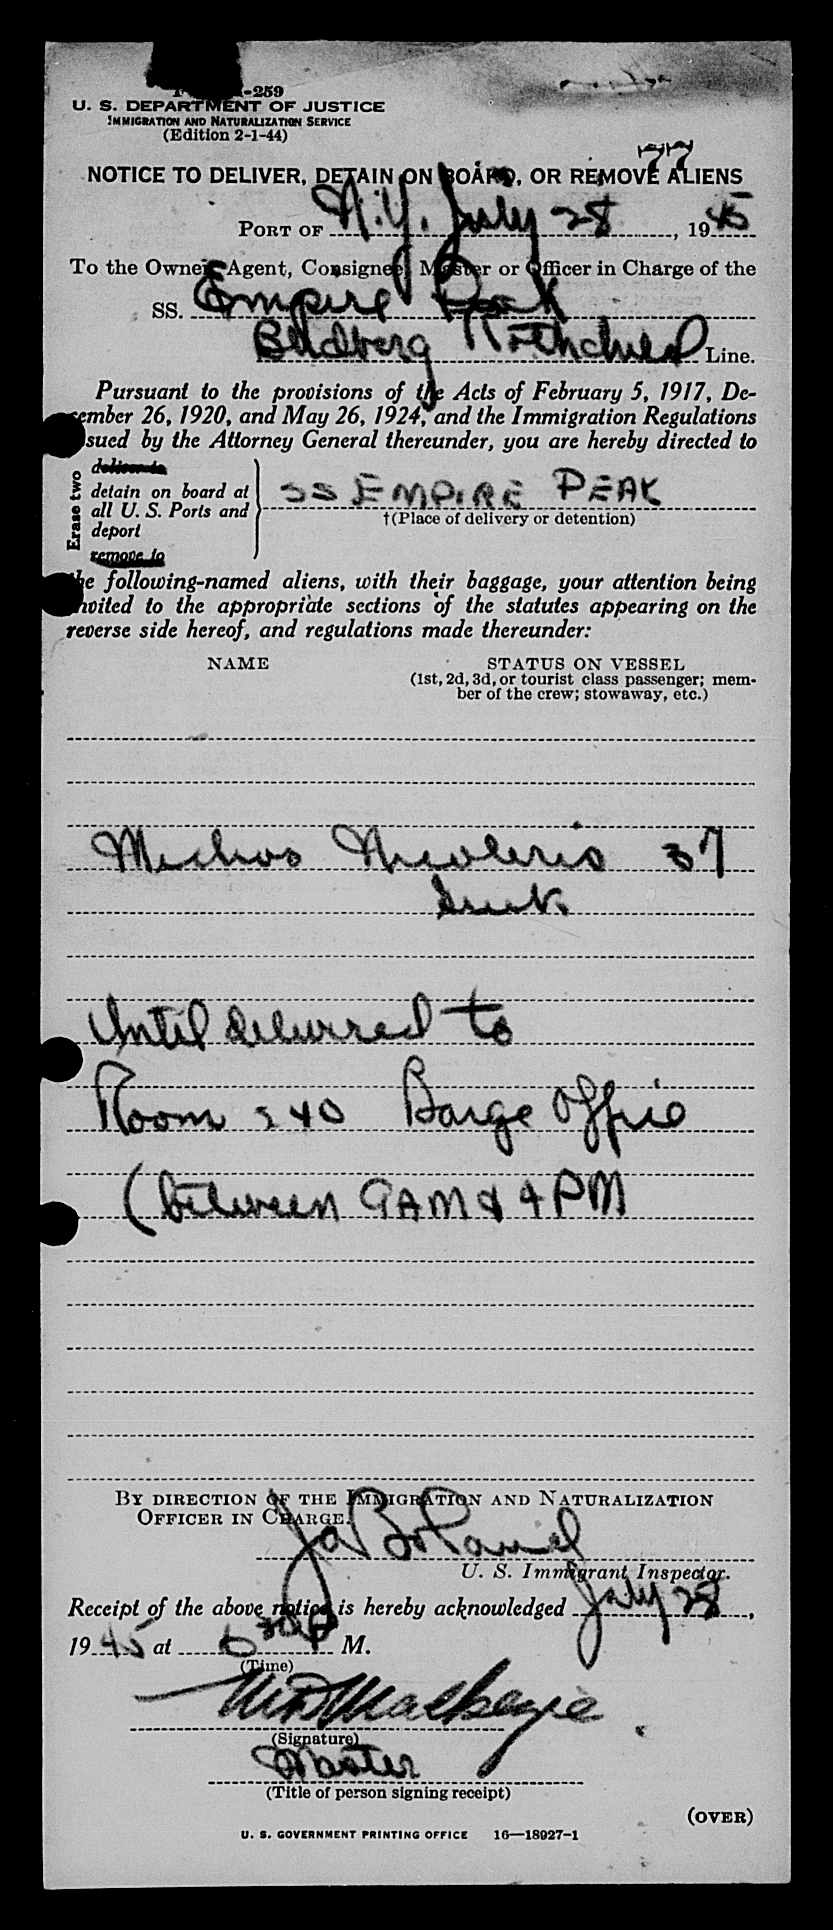 -259
U. S. DEPARTMENT OF JUSTICE
IMMIGRATION AND NATURALIZATION SERVICE
(Edition 2-1-44)
77
NOTICE TO DELIVER, DETAIN ON BOARD, OR REMOVE ALIENS
PORT OF N.Y. July 28, 1945
To the Owner, Agent, Consignee, Master or Officer in Charge of the
SS. Empire Peak
Line.
Pursuant to the provisions of the Acts of February 5, 1917, De-
cember 26, 1920, and May 26, 1924, and the Immigration Regulations
issued by the Attorney General thereunder, you are hereby directed to
Erase two
deliver to
detain on board at
all U. S. Ports and
deport
remove to
SS EMPIRE PEAK
†(Place of delivery or detention)
the following-named aliens, with their baggage, your attention being
invited to the appropriate sections of the statutes appearing on the
reverse side hereof, and regulations made thereunder:
NAME STATUS ON VESSEL
(1st, 2d, 3d, or tourist class passenger; mem-
ber of the crew; stowaway, etc.)
37
Until delivered to
Room 240 Barge Office
(between 9AM & 4PM
BY DIRECTION OF THE IMMIGRATION AND NATURALIZATION
OFFICER IN CHARGE.
U. S. Immigrant Inspector.
Receipt of the above notice is hereby acknowledged July 28,
1945 at 630 P M.
(Time)
(Signature)
Master
(Title of person signing receipt)
(OVER)
U. S. GOVERNMENT PRINTING OFFICE 16—18927-1